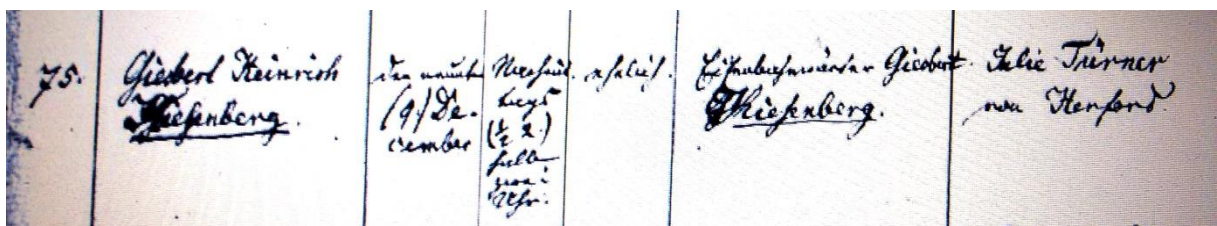 75.
Giesbert Heinrich
Thiesenberg.
den neunten
(9) De-
cember
Nachmit
tags
(½ 2.)
halb
zwei
Uhr.
ehelich.
Eisenbahnwärter Giesbert
Thiesenberg.
Julie Türner
von Herford.